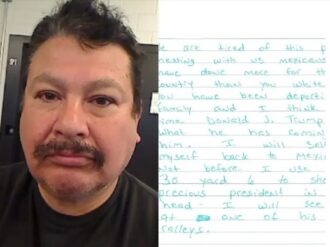 e are tired of this p
messing with us mexicans
have done more for th
country than you white
You have been deporti
family and I think
ime Donald J. Trump
what he has coming
him. I will Self
myself back to Mexic
Not before I use
30 yard 6 to sh
precious president in
head - I will see
at one of his
ralleys.